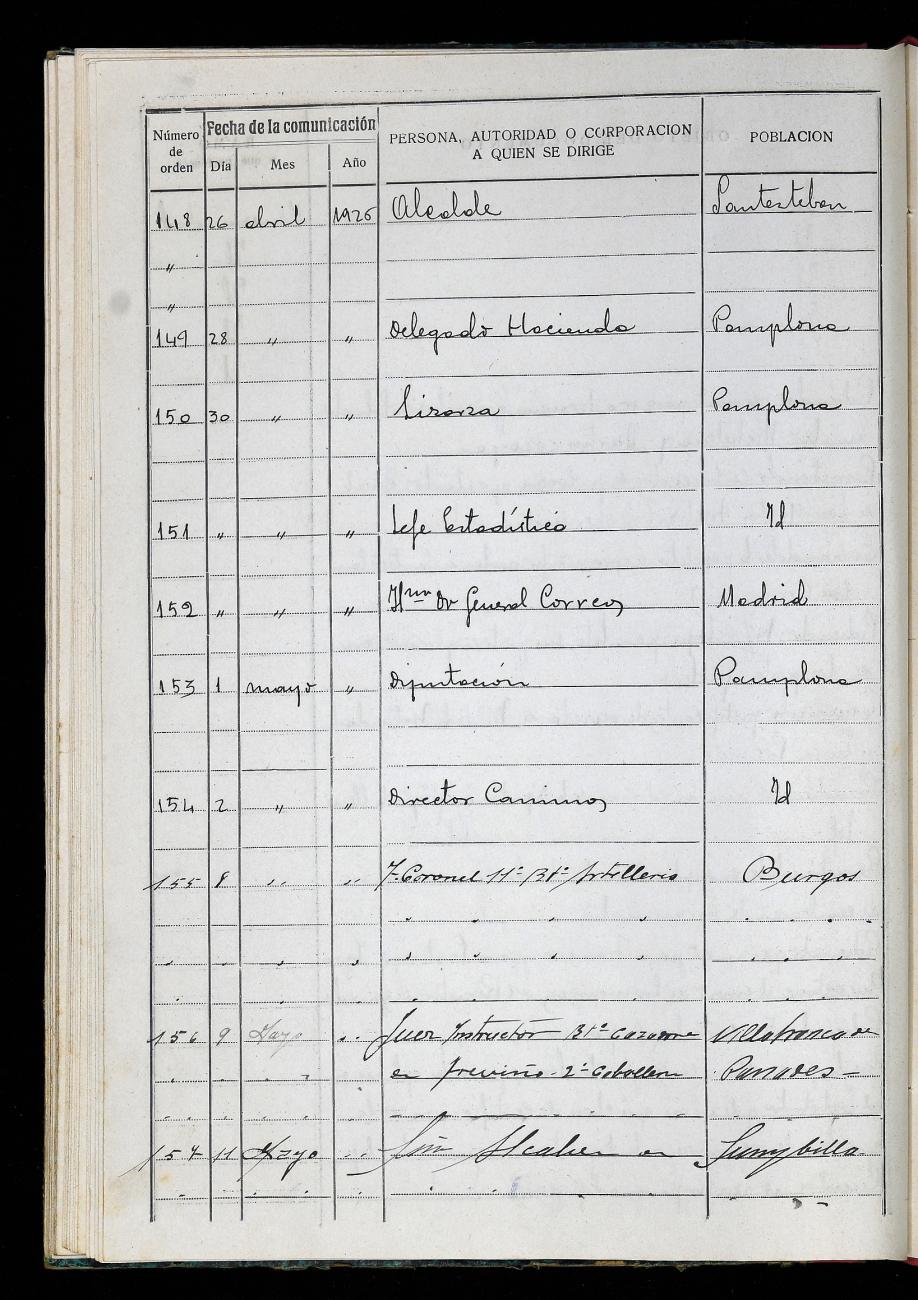 Número de orden Fecha de la comunicación PERSONA, AUTORIDAD O CORPORACION A QUIEN SE DIRIGE POBLACION
Día Mes Año
148 26 abril 1926 Alcalde Santesteban
〃
〃
149 28 〃 〃 Delegado Hacienda Pamplona
150 30 〃 〃 Lizarza Pamplona
151 〃 〃 〃 Jefe Estadística Id
152 〃 〃 〃 General Correos Madrid
153 1 mayo 〃 Diputación Pamplona
154 2 〃 〃 Director Caminos Id
155 8 〃 〃 T. Coronel 11º Artilleria Burgos
156 9 Mayo 〃 Juez Instructor Cazadores Villafranca de
en Treviño - 2º Caballeria Panades -
157 11 Mayo 〃 Sumbilla